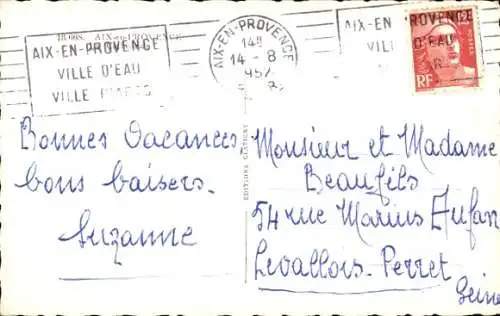 AIX-EN-PROVENCE
VILLE D'EAU
VILLE D'ARTS
AIX-EN-PROVENCE
14H
14 - 8
195
AIX-EN-PROVENCE
VILLE D'EAU
RF
Bonnes Vacances,
bons baisers.
Suzanne
EDITIONS
Monsieur et Madame
Beaufils
54 rue Marius Aufan
Levallois-Perret
Seine